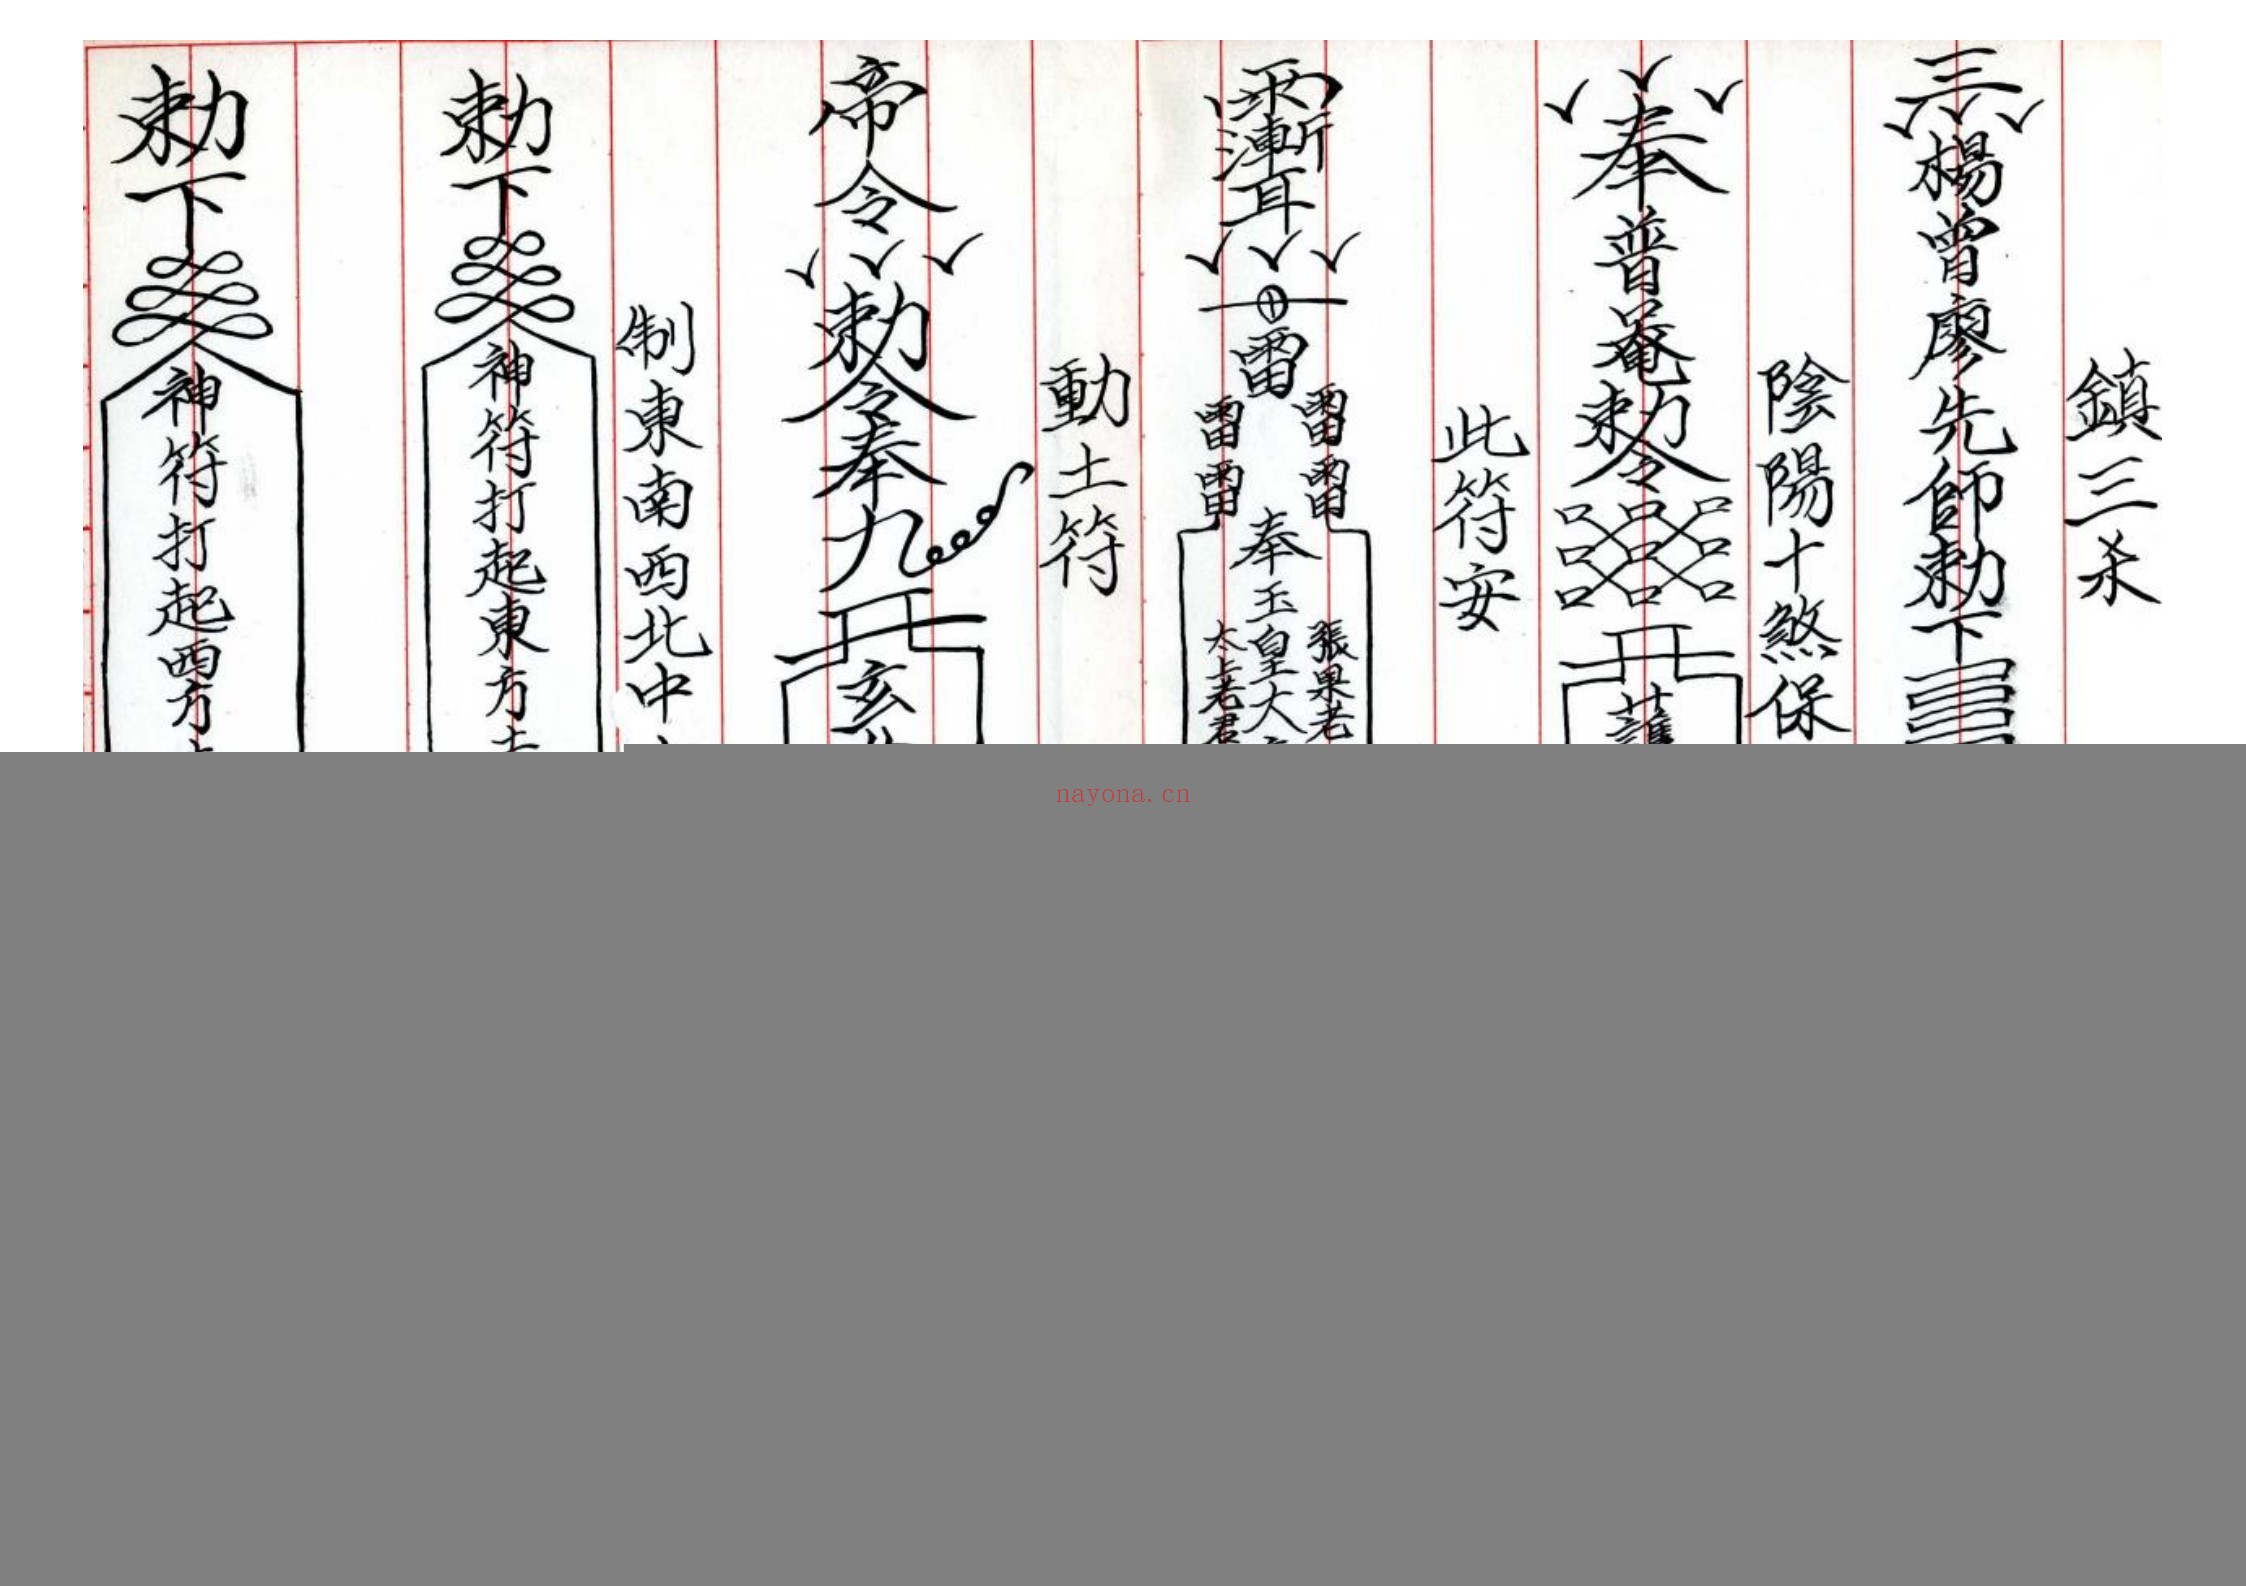 鎮三杀
三楊曾廖先師勅下
陰陽十煞保
奉普菴勅令
護
此符安
雷
雷雷
雷雷
奉玉皇大
張果老
太上老君
動土符
帝令勅令奉九
玄
制東南西北中
勅下神符打起東方
勅下神符打起西方
nayona.cn